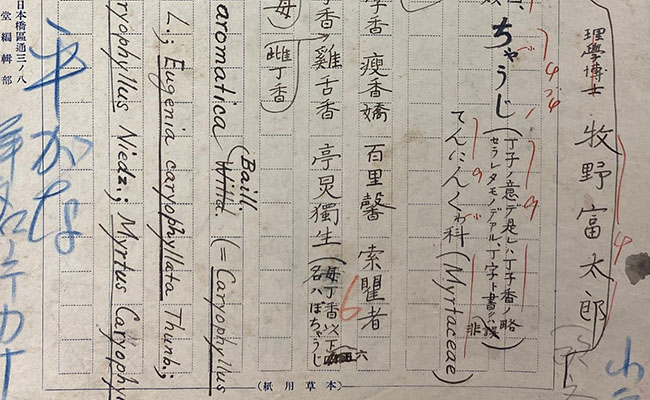 理學博士 牧野富太郎
ちゃうじ
(丁子ノ意デ是レハ丁子香ノ略
セラレタモノデアル、丁字ト書クハ誤
非
てんにんくゎ科 (Myrtaceae)
香 瘦香嬌 百里馨 索瞿者
香 雞舌香 亭炅獨生
(母丁香以下六
名ハぼちゃうじ
6
母)
雌丁香
aromatica Baill. (= Caryophyllus
L.; Eugenia caryophyllata Thunb.;
ryophyllus Niedz.; Myrtus Caryophy
平がな
日本橋區通三ノ八
堂編輯部
(紙用草本)